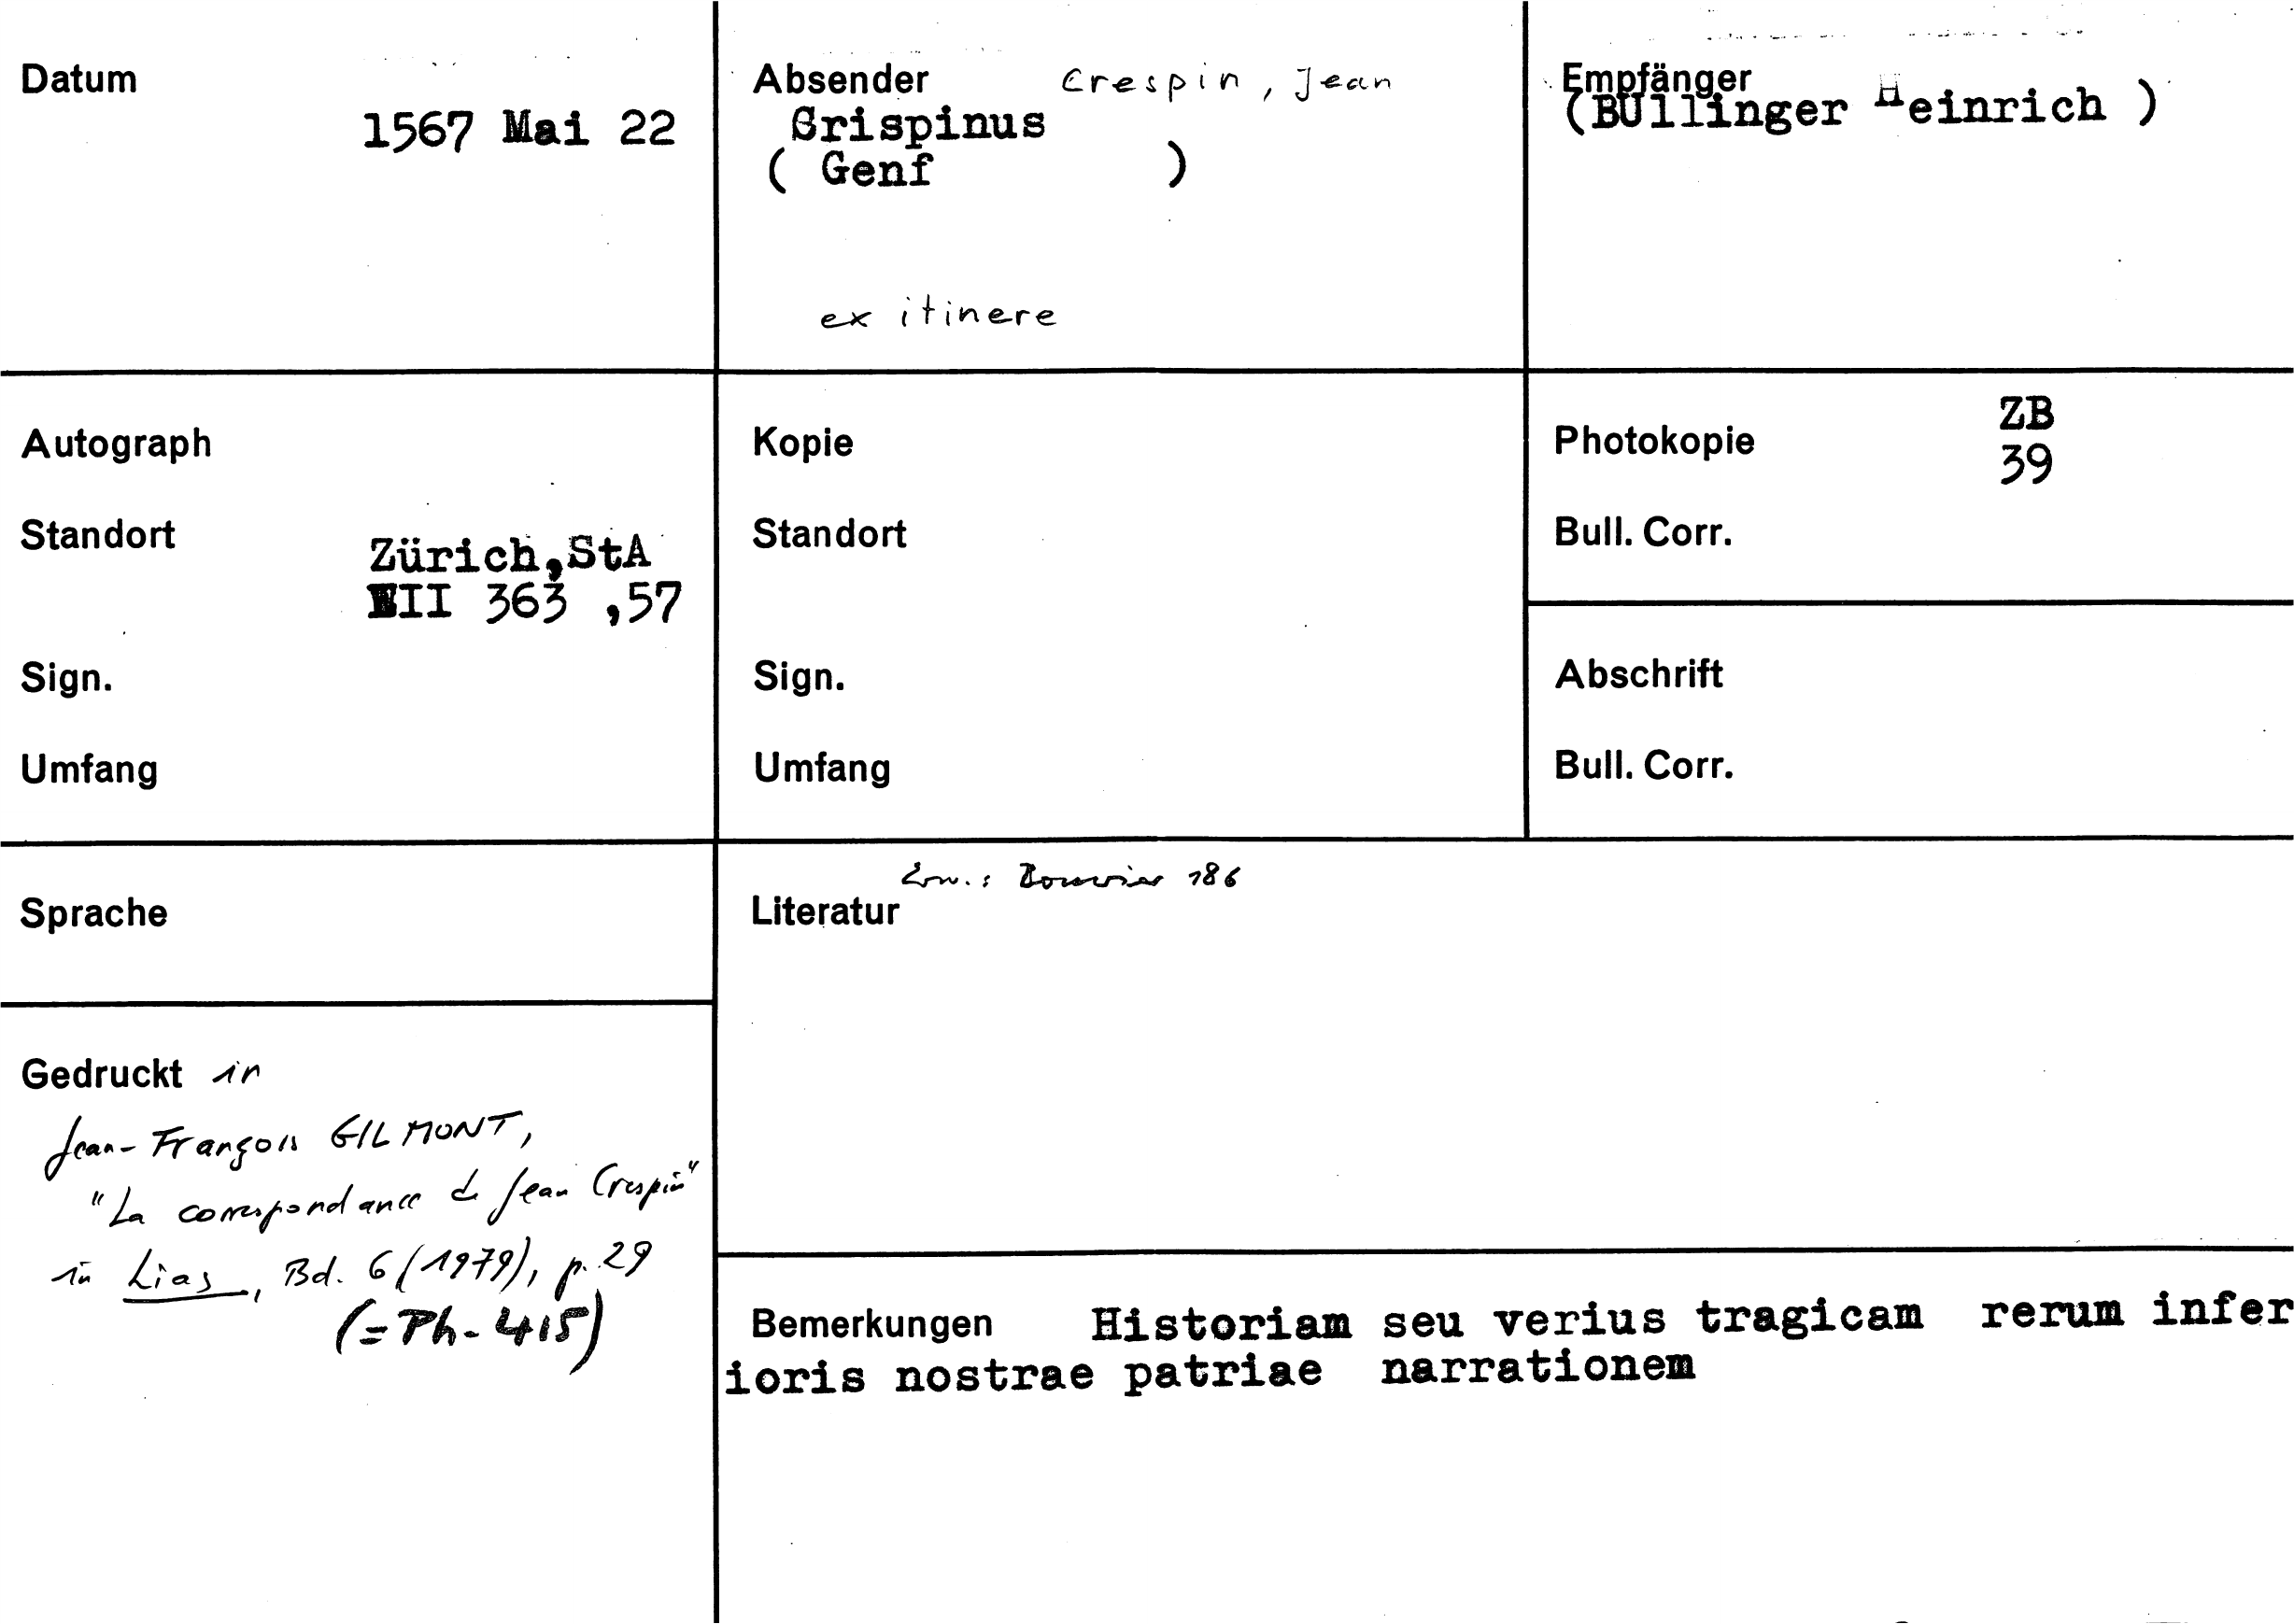 Datum
1567 Mai 22
Absender Crespin, Jean
Crispinus
( Genf )
ex itinere
Empfänger
(BUllinger Heinrich )
Autograph
Standort
Zürich,StA
EII 363 ,57
Sign.
Umfang
Kopie
Standort
Sign.
Umfang
Photokopie ZB
39
Bull. Corr.
Abschrift
Bull. Corr.
Sprache
Erw.: Bouvier 186
Literatur
Gedruckt in
Jean-François GILMONT,
"La correspondance de Jean Crespin"
in Lias, Bd. 6 (1979), p. 29
(=Ph-415)
Bemerkungen Historiam seu verius tragicam rerum infer
ioris nostrae patriae narrationem